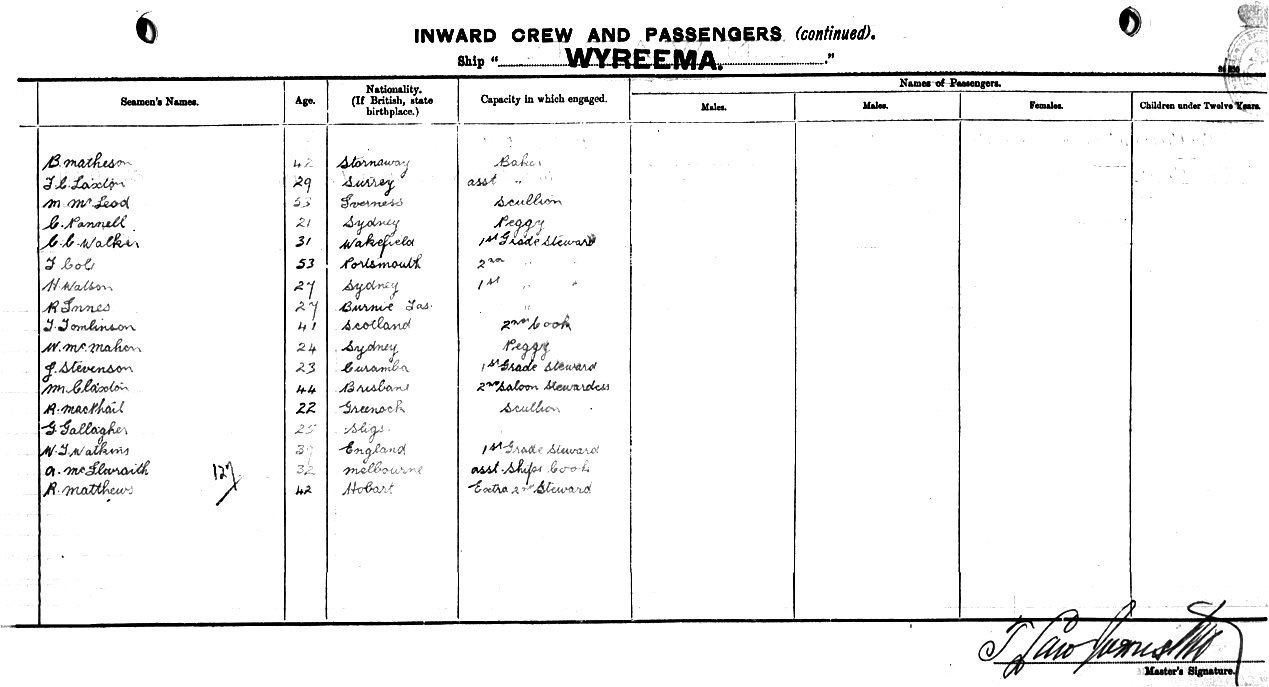 INWARD CREW AND PASSENGERS (continued).
Ship "WYREEMA."
Seamen's Names. Age. Nationality. (If British, state birthplace.) Capacity in which engaged. Names of Passengers.
Males. Males. Females. Children under Twelve Years.
B. Matheson 42 Stornaway Baker
T. C. Laxton 29 Surrey asst "
M McLeod 53 Iverness Scullion
C. Pannell 21 Sydney Peggy
C. C. Walker 31 Wakefield 1st Grade Steward
T Cole 53 Portsmouth 2nd " "
H Watson 27 Sydney 1st " "
R Innes 27 Burnie Tas. "
T. Tomlinson 41 Scotland 2nd Cook
W. McMahon 24 Sydney Peggy
J. Stevenson 23 1st Grade Steward
M. Claxton 44 Brisbane 2nd Saloon Stewardess
R. MacPhail 22 Greenock Scullion
G Gallagher 25
W. T Watkins 39 England 1st Grade Steward
A. McIlvraith 127 32 Melbourne asst Ships Cook
R. Matthews 42 Hobart Extra 2nd Steward
Master's Signature.